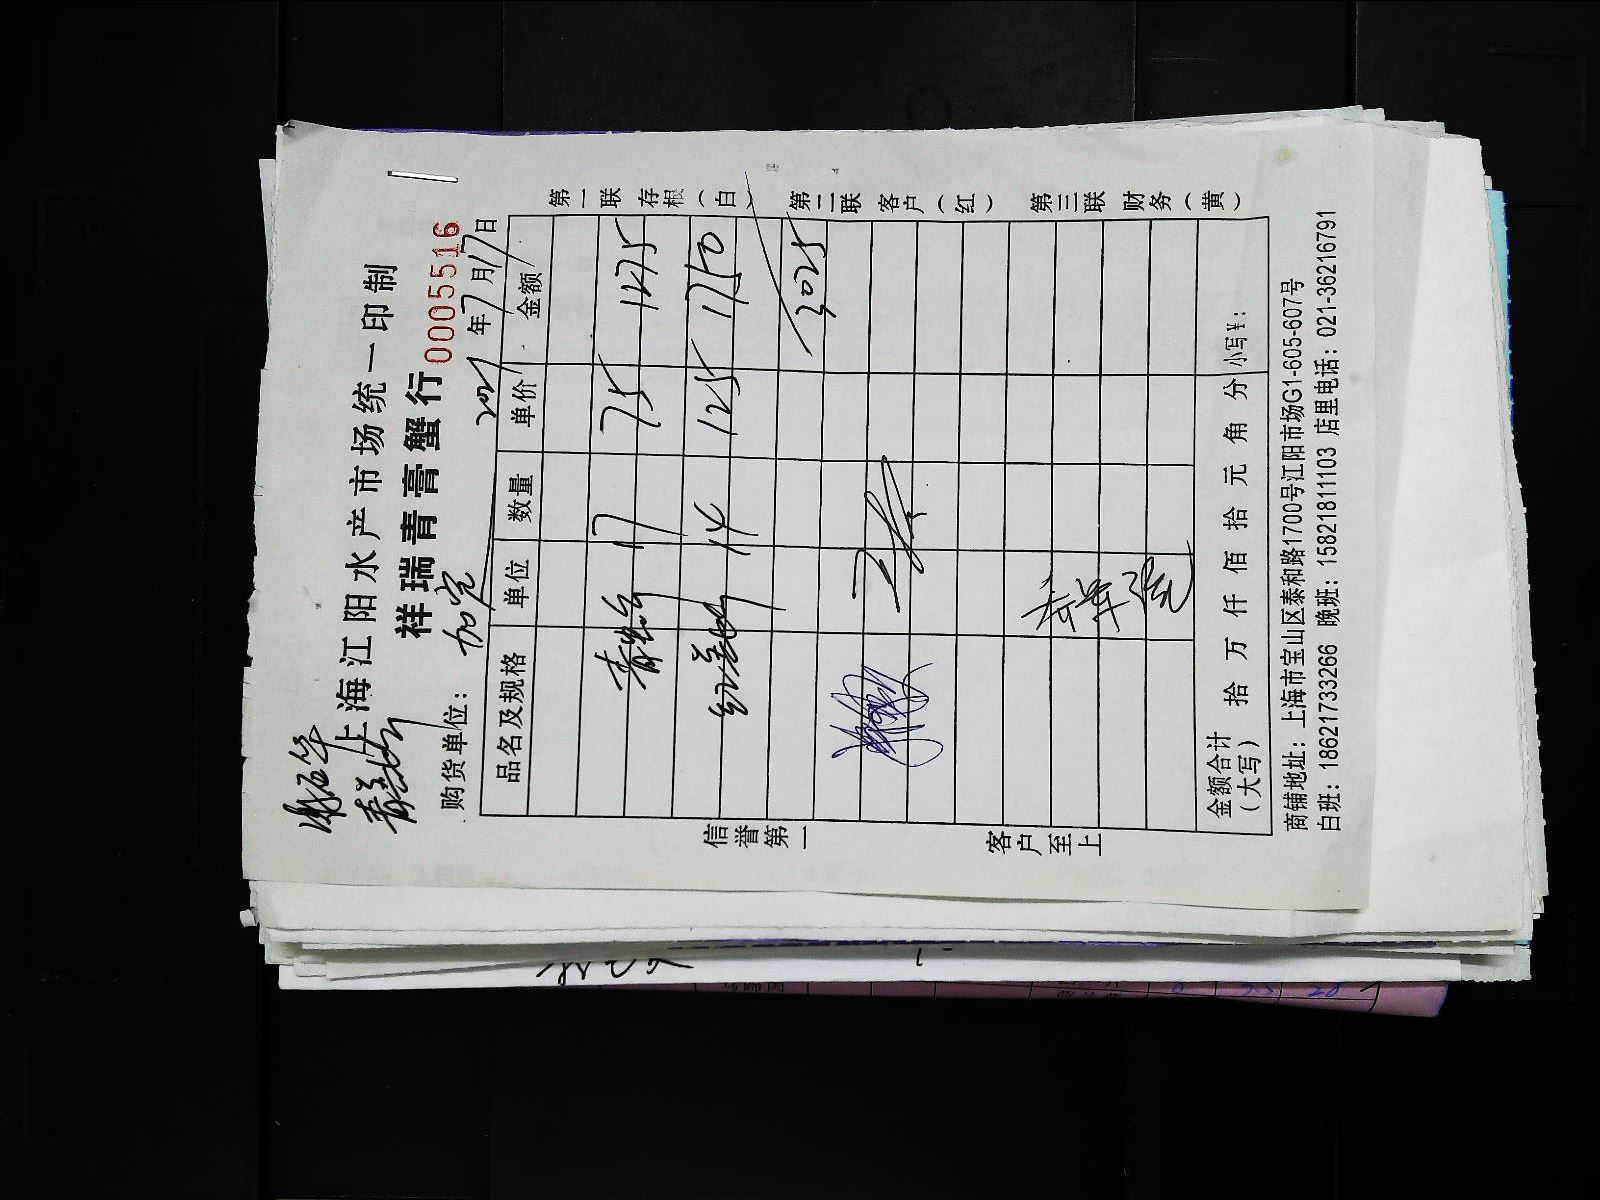 上海江阳水产市场统一印制
祥瑞青膏蟹行
0005516
购货单位:
2021年7月17日
品名及规格 单位 数量 单价 金额
17 75 1275
14 125 1750
3025
金额合计(大写) 拾 万 仟 佰 拾 元 角 分 小写¥:
商铺地址:上海市宝山区泰和路1700号江阳市场G1-605-607号
白班:18621733266 晚班:15821811103 店里电话:021-36216791
信誉第一
客户至上
第一联 存根(白)
第二联 客户(红)
第三联 财务(黄)